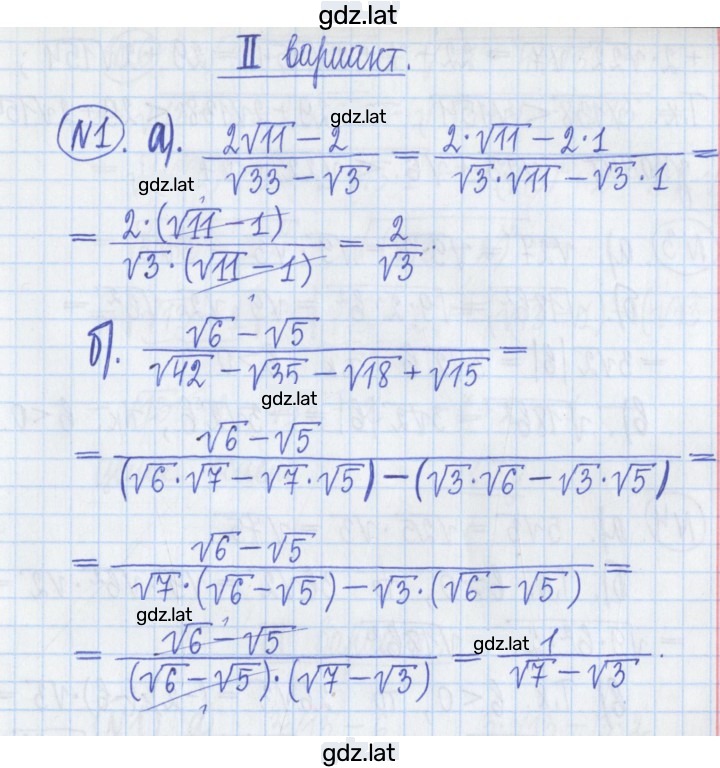 gdz.lat
II вариант.
gdz.lat
№1. а). (2√11 − 2)/(√33 − √3) = (2·√11 − 2·1)/(√3·√11 − √3·1) =
gdz.lat
= (2·(√11 − 1))/(√3·(√11 − 1)) = 2/√3.
б). (√6 − √5)/(√42 − √35 − √18 + √15) =
gdz.lat
= (√6 − √5)/((√6·√7 − √7·√5) − (√3·√6 − √3·√5)) =
= (√6 − √5)/(√7·(√6 − √5) − √3·(√6 − √5)) =
gdz.lat
gdz.lat
= (√6 − √5)/((√6 − √5)·(√7 − √3)) = 1/(√7 − √3).
gdz.lat